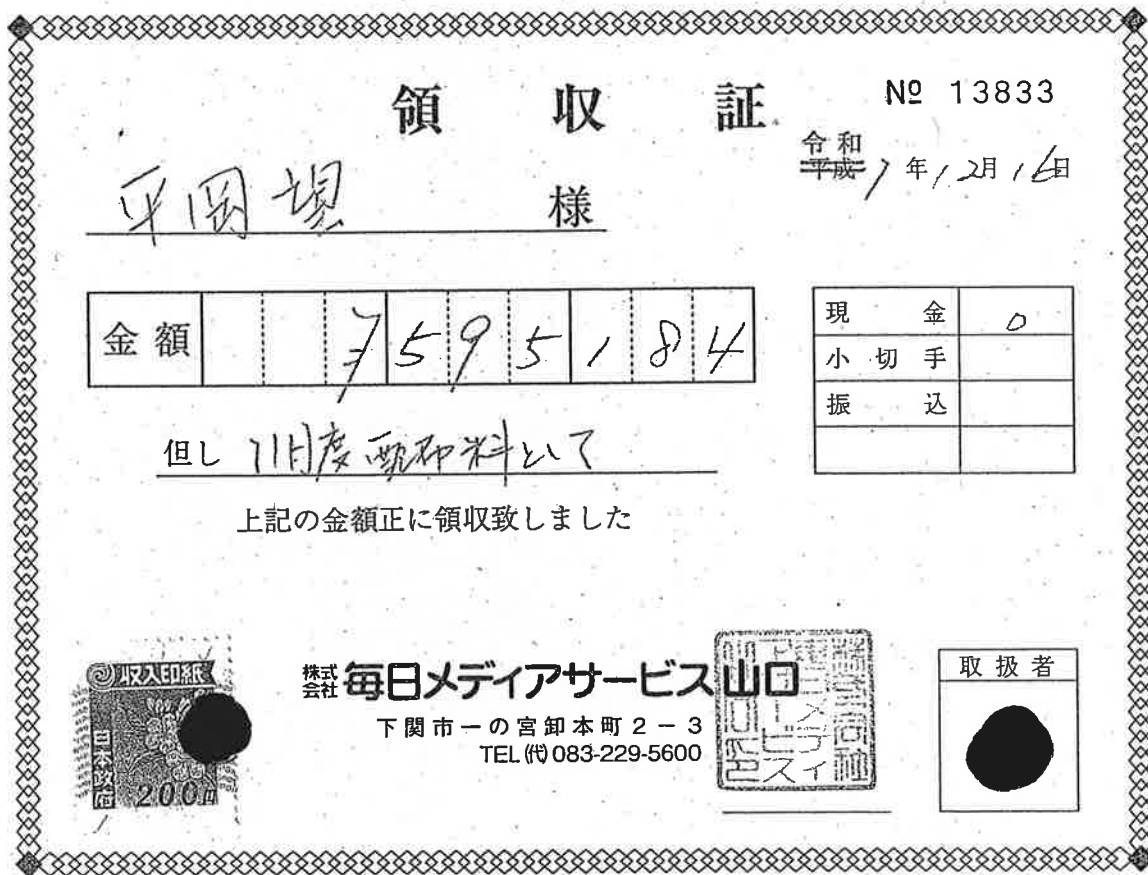 領収証
№ 13833
令和
平成 7年12月16日
平岡望 様
金額 ¥595184
現金 0
小切手
振込
但し 11月度配布料として
上記の金額正に領収致しました
収入印紙
日本政府
200円
株式会社 毎日メディアサービス山口
下関市一の宮卸本町2-3
TEL(代)083-229-5600
取扱者